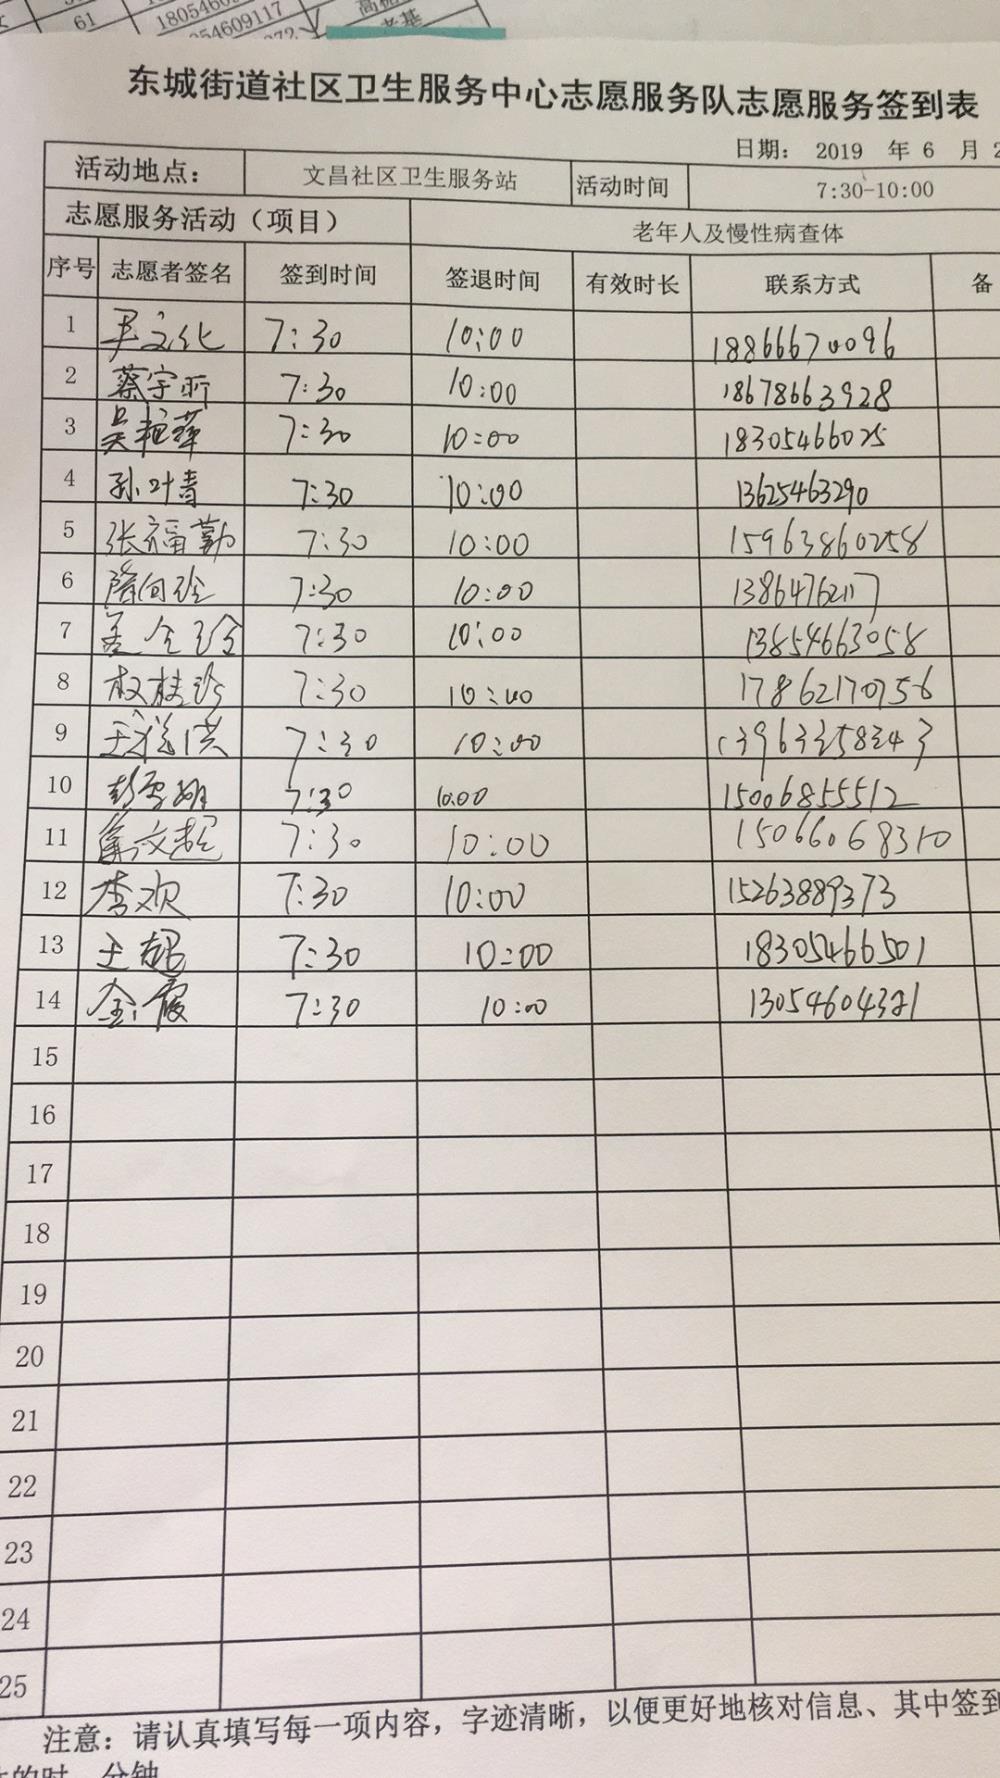 61 18054609
54609117
东城街道社区卫生服务中心志愿服务队志愿服务签到表
日期： 2019 年 6 月 2
活动地点： 文昌社区卫生服务站 活动时间 7:30-10:00
志愿服务活动（项目） 老年人及慢性病查体
序号 志愿者签名 签到时间 签退时间 有效时长 联系方式 备
1 尹文化 7:30 10:00 18866670096
2 蔡宇昕 7:30 10:00 18678663928
3 吴艳萍 7:30 10:00 18305466025
4 孙叶青 7:30 10:00 13625463290
5 张福勤 7:30 10:00 15963860258
6 隋向珍 7:30 10:00 13864762117
7 7:30 10:00 13854663058
8 权桂珍 7:30 10:00 17862170756
9 7:30 10:00 13963358343
10 彭雪娟 7:30 10:00 15006855512
11 7:30 10:00 15066068310
12 李欢 7:30 10:00 15263889373
13 王超 7:30 10:00 18305466501
14 金霞 7:30 10:00 13054604321
15
16
17
18
19
20
21
22
23
24
25
注意：请认真填写每一项内容，字迹清晰，以便更好地核对信息、其中签到
的时、分钟